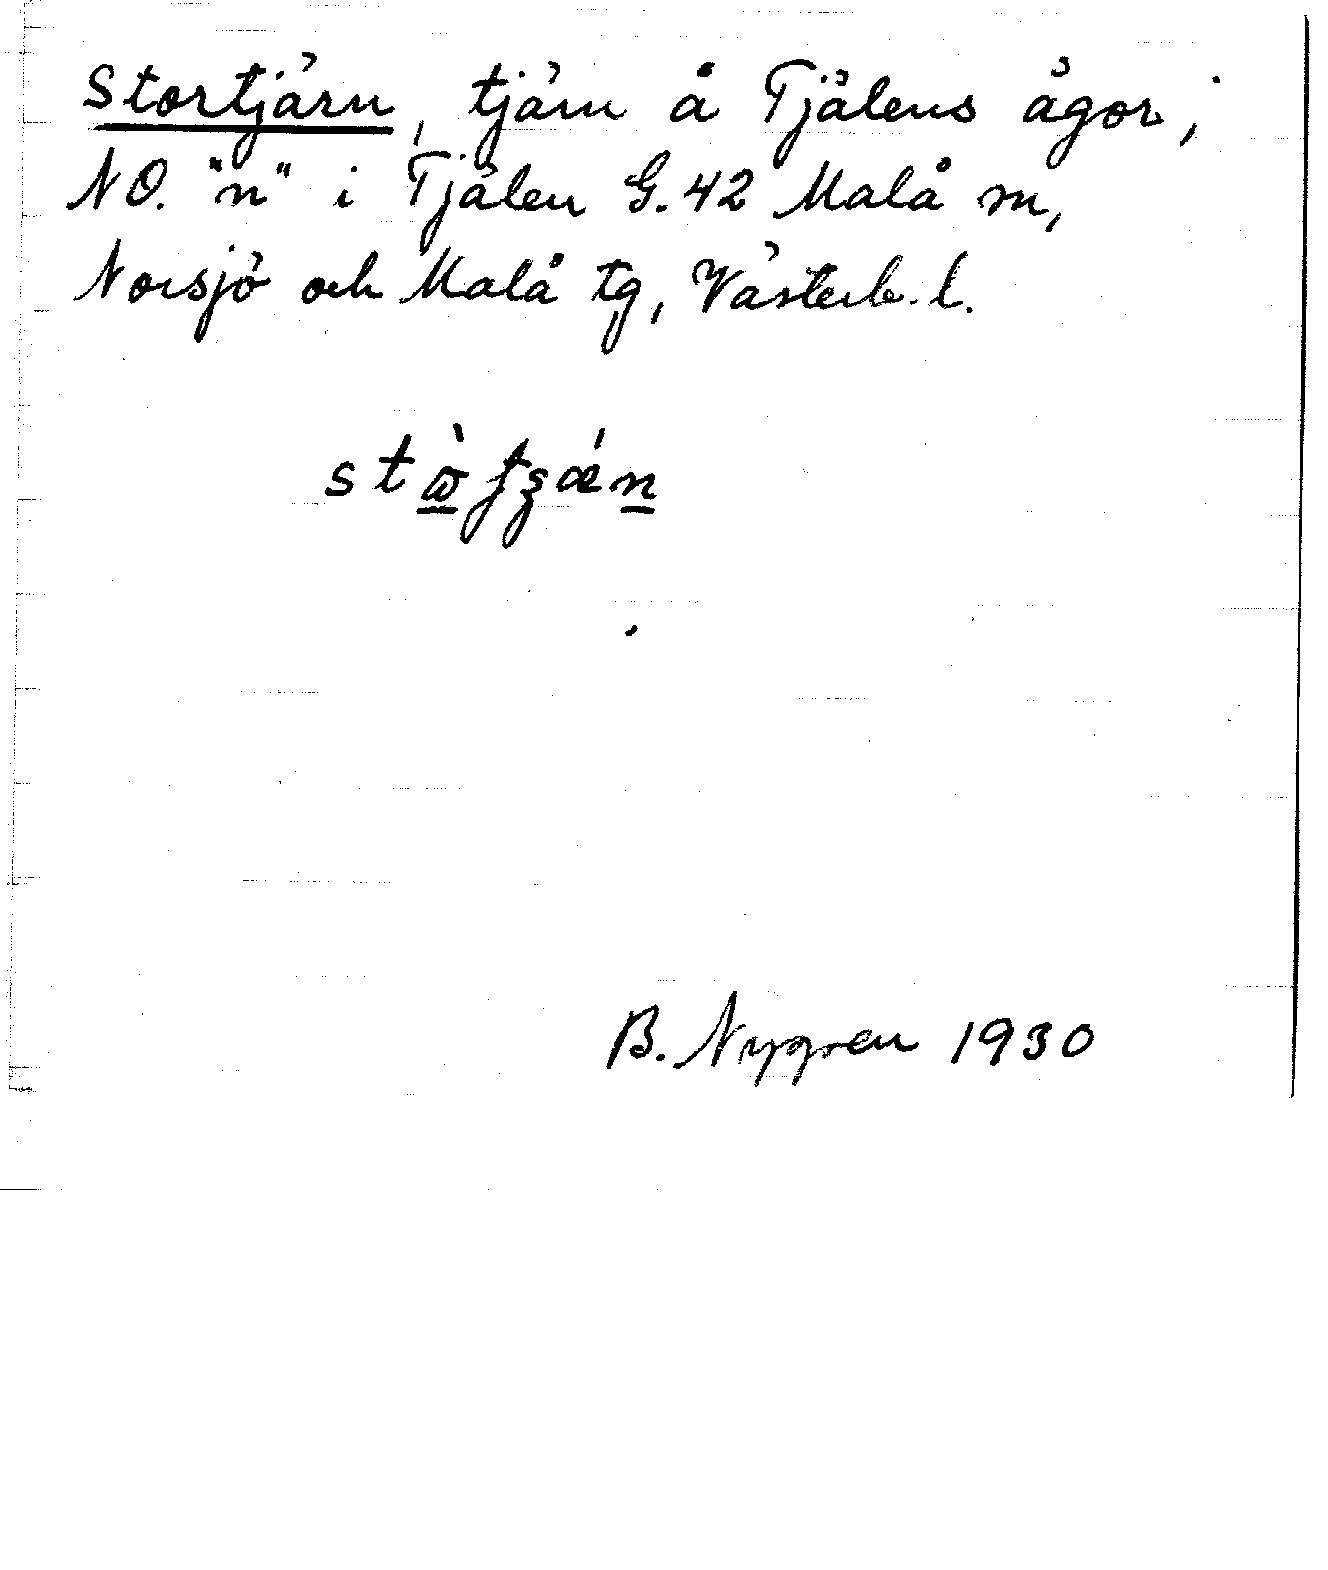 Stortjärn, tjärn å Tjälens ägor,
NO. "n" i Tjälen G.42 Malå sn,
Norsjö och Malå tg, Västerb. l.
B. Nygren 1930